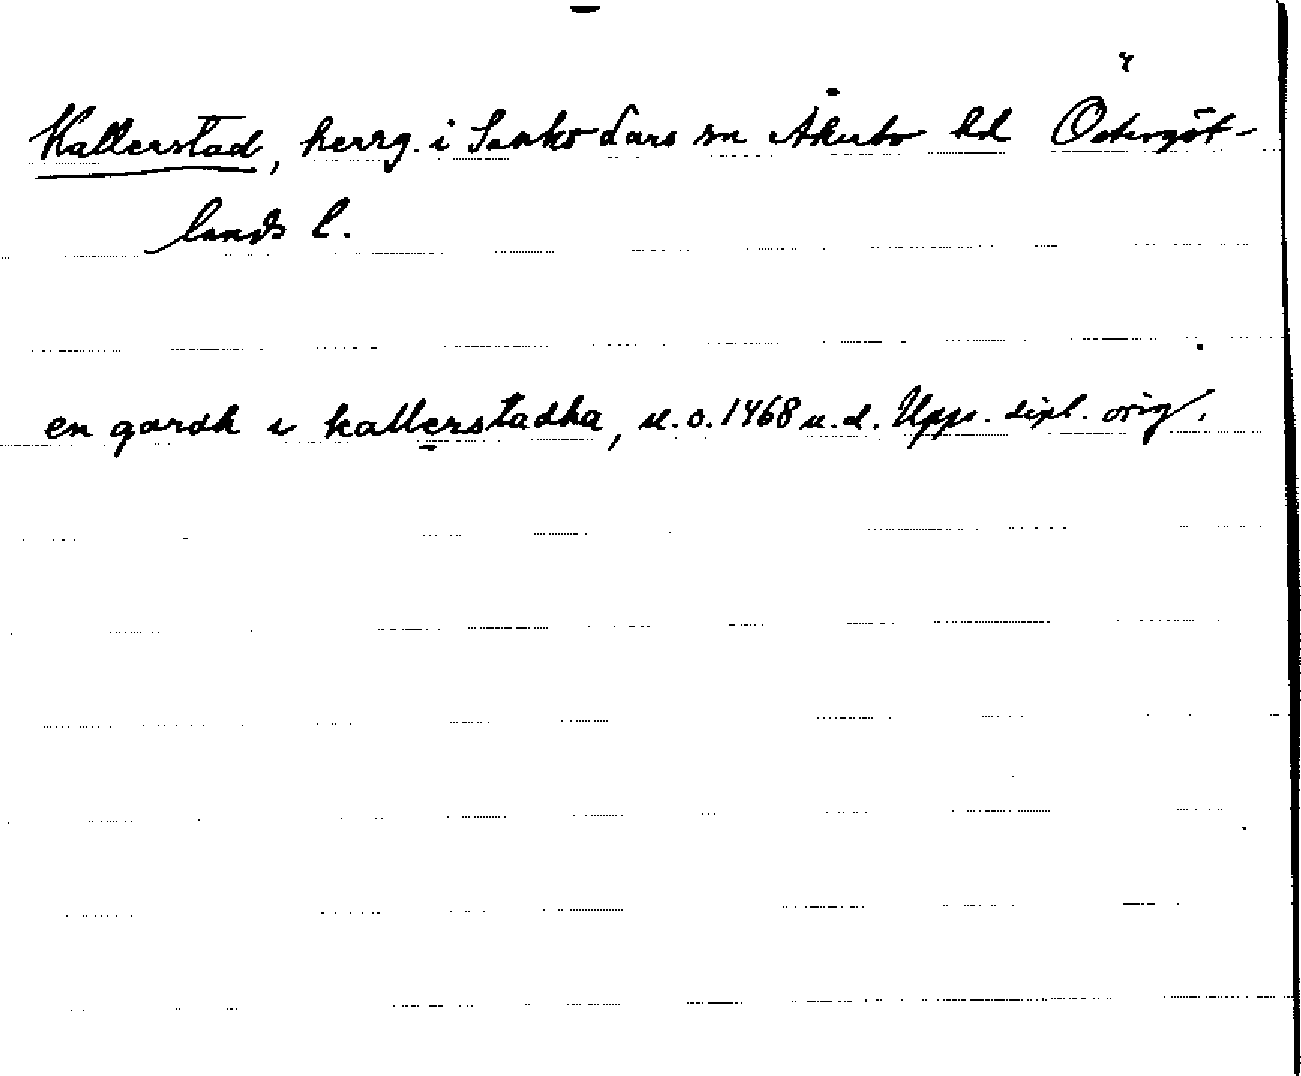 Kallerstad, herrg. i Sankt Lars sn Åkerbo hd Östergöt-
lands l.
en gardh i kallerstadha, u.o. 1468 u.d. Upps. dipl. orig.